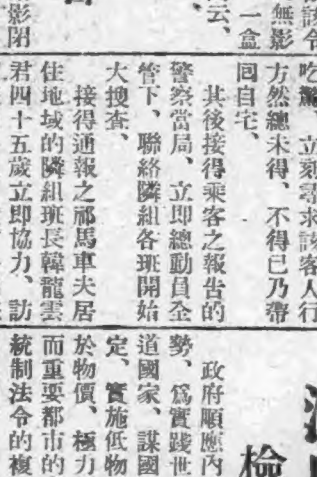 該令
無影
一盒
云、
影閉
吃驚、立刻尋求該客人行
方然總未得、不得已乃帶
回自宅、
其後接得乘客之報告的
警察當局、立即總動員全
管下、聯絡隣組各班開始
大搜查、
接得通報之鄢馬車夫居
住地域的隣組班長韓龍雲
君四十五歲立即協力、訪
檢
政府順應內
勢、爲實踐世
道國家、謀國
定、實施低物
於物價、極力
而重要都市的
統制法令的複